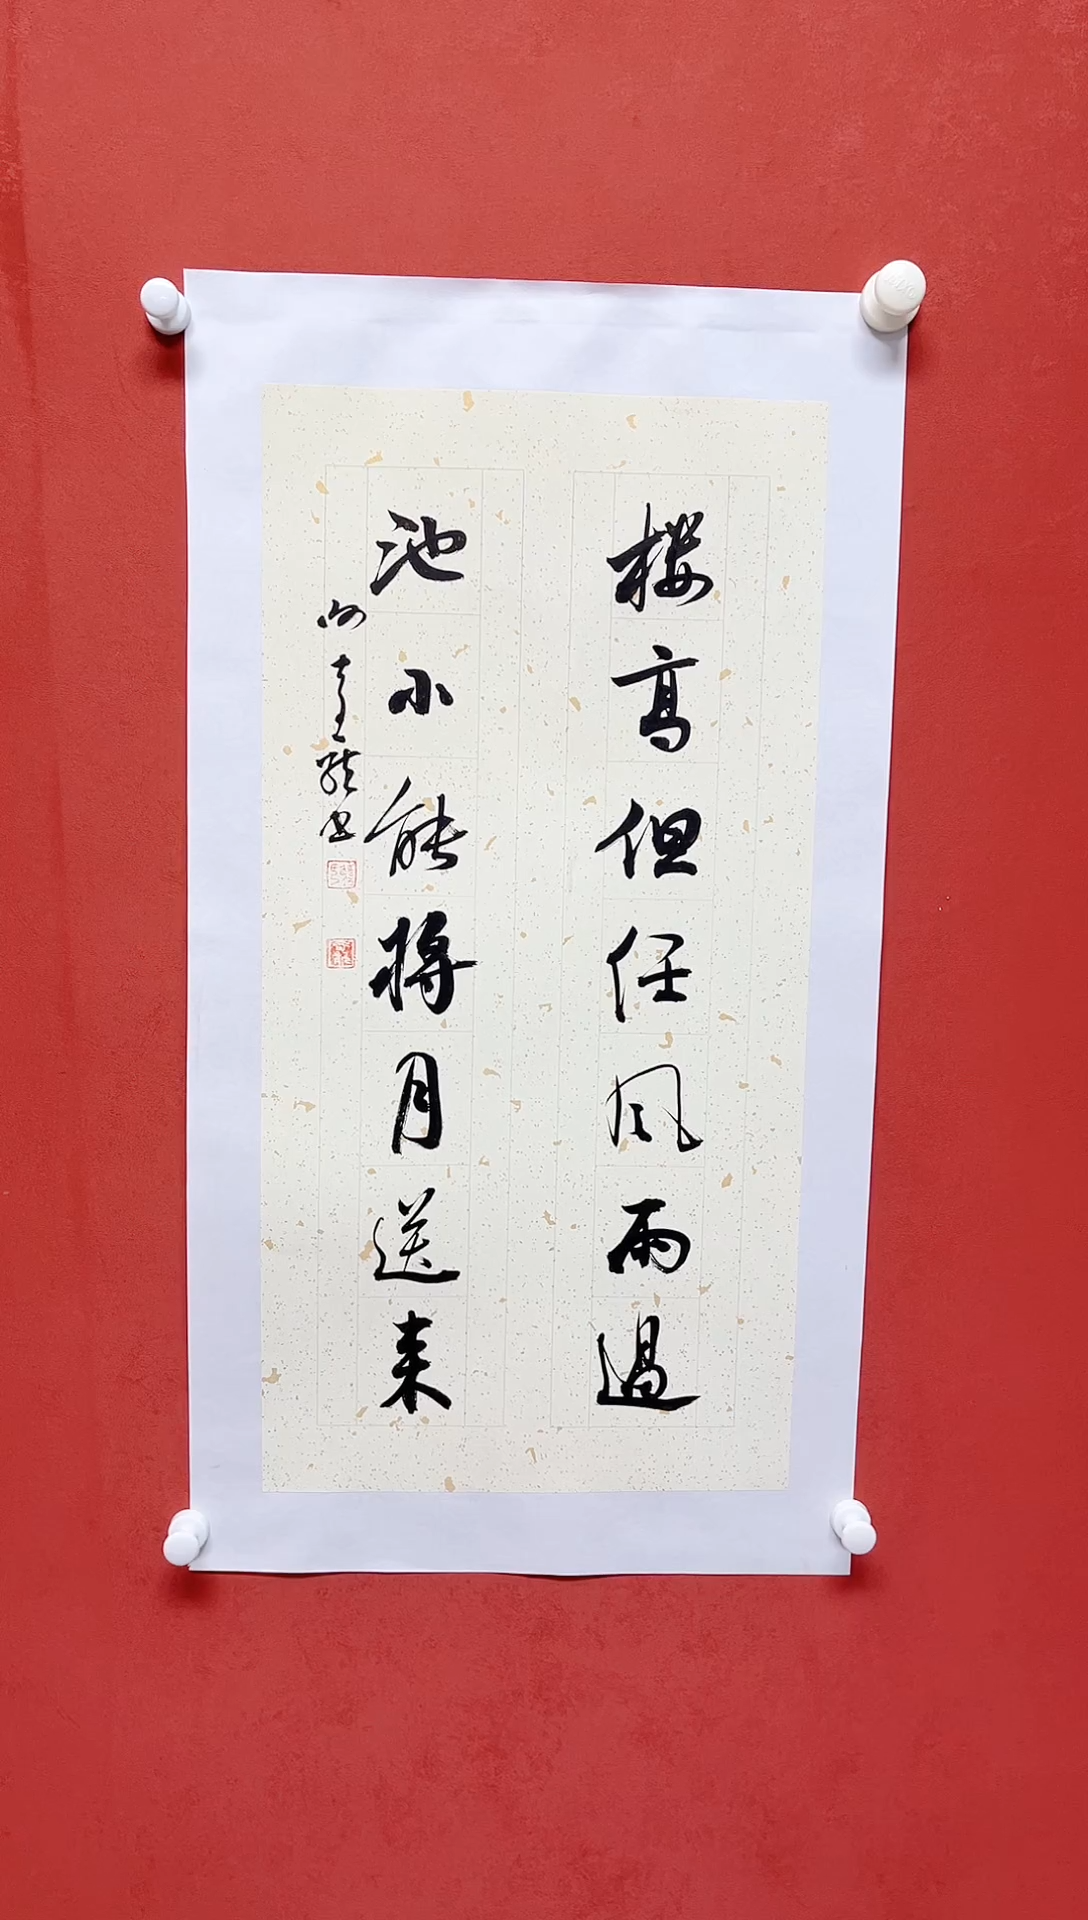 楼高但任风雨過
池小能将月送来